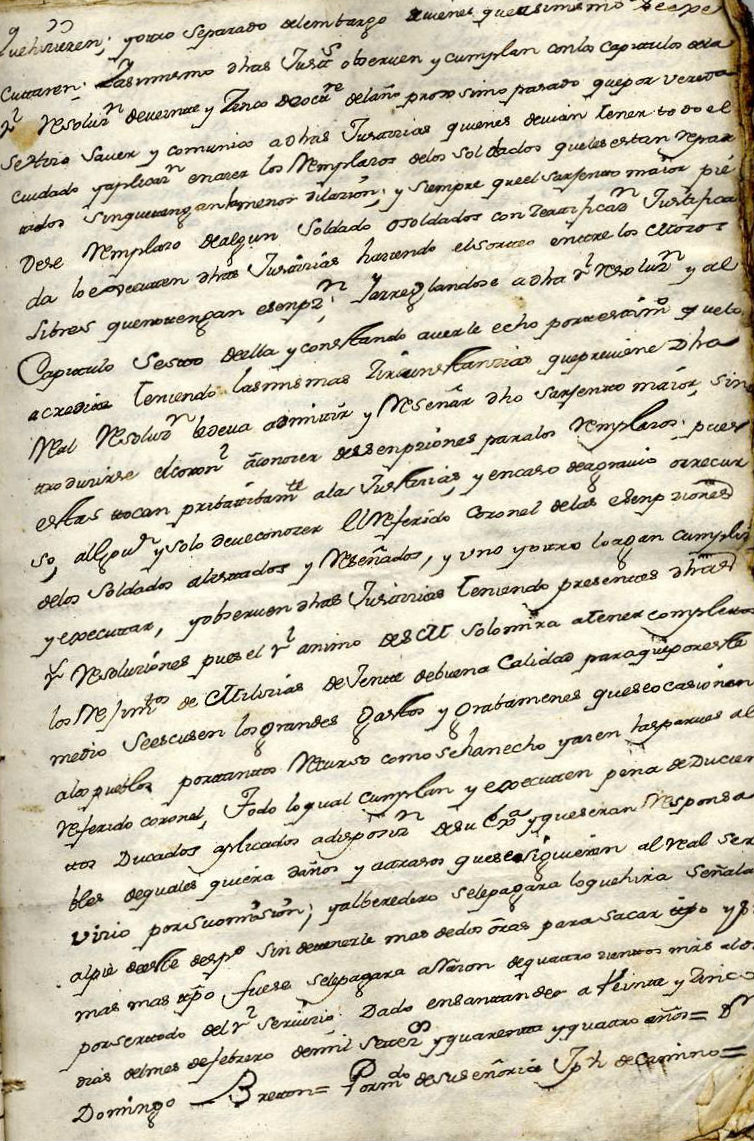 quehicieren; yotro separado delembargo quienes queasimismo se exe
Cuttaren; Yasimismo dhas Justs. observen y cumplan conlos Capitulos dela
Rl. Resoluzn. deveinte y Zinco deocre. delaño proxsimo pasado quepor vereda
sehizo Saver y comunico adhas Justizias quienes devian tener todo el
Cuidado yaplicazn. enazer los Remplazos delos Soldados queles estan repar
tidos sinquetengan lamenor dilazion; y siempre queel sarsento maior pi
diese Remplazo dealgun Soldado osoldados con Zertificazn. Justifica
da lo executen dhas Justizias haziendo elsorteo entre los Mozos
libres quenotengan esenpzn.; Yarreglandose adha Rl. Resoluzn. y al
Capitulo Sesto deella y constando averle echo portestimo. quelo
acredite teniendo lasmismas Zircunstanzias quepreviene Dha
Real Resoluzn. sedeva admitir y Reseñar dho sarsento maior, sin
troduzirse elcoronl. aconozer delasenpziones paralos Remplazos. pues
estas tocan pribatibamte. alas Justizias, y encaso deagravio orecur
so, y solo deveconozer el Referido Coronel delas esenpziones
delos Soldados alistados y Reseñados, y uno yotro loagan cumplir
y executar, yobserven dhas Justizias teniendo presentes dhas
Rs. Resoluziones pues el Rl. animo deSM solomira atener completos
los Rejimtos. de Milizias de Jente debuena Calidad paraqueporeste
medio seescusen losgrandes Gastos y grabamenes queseocasionan
alos pueblos portantos Recurso como sehanecho yazen lasparttes al
referido coronel, Todo loqual cumplan y executen pena deDucien
ttos Ducados aplicados adisposizn. desu Exa. yqueseran Responsa
bles dequales quiera daños y atrasos quesesiguieren al Real ser
vizio porsuomision; yalberedero selepagara loquehira señala
alpie deeste despo. sin detenerle mas dedos oras para sacar tpo y si
mas mas tpo. fuese selepagara aRazon dequatro rs mas
porsertodo del Rl. servizio. Dado ensantander a Veinte y Zinco
dias delmes defebrero demil Setezs. yquarenta yquatro años= Dn.
Domingo Breton= Pormdo. desuseñoria Jph. deCamino=